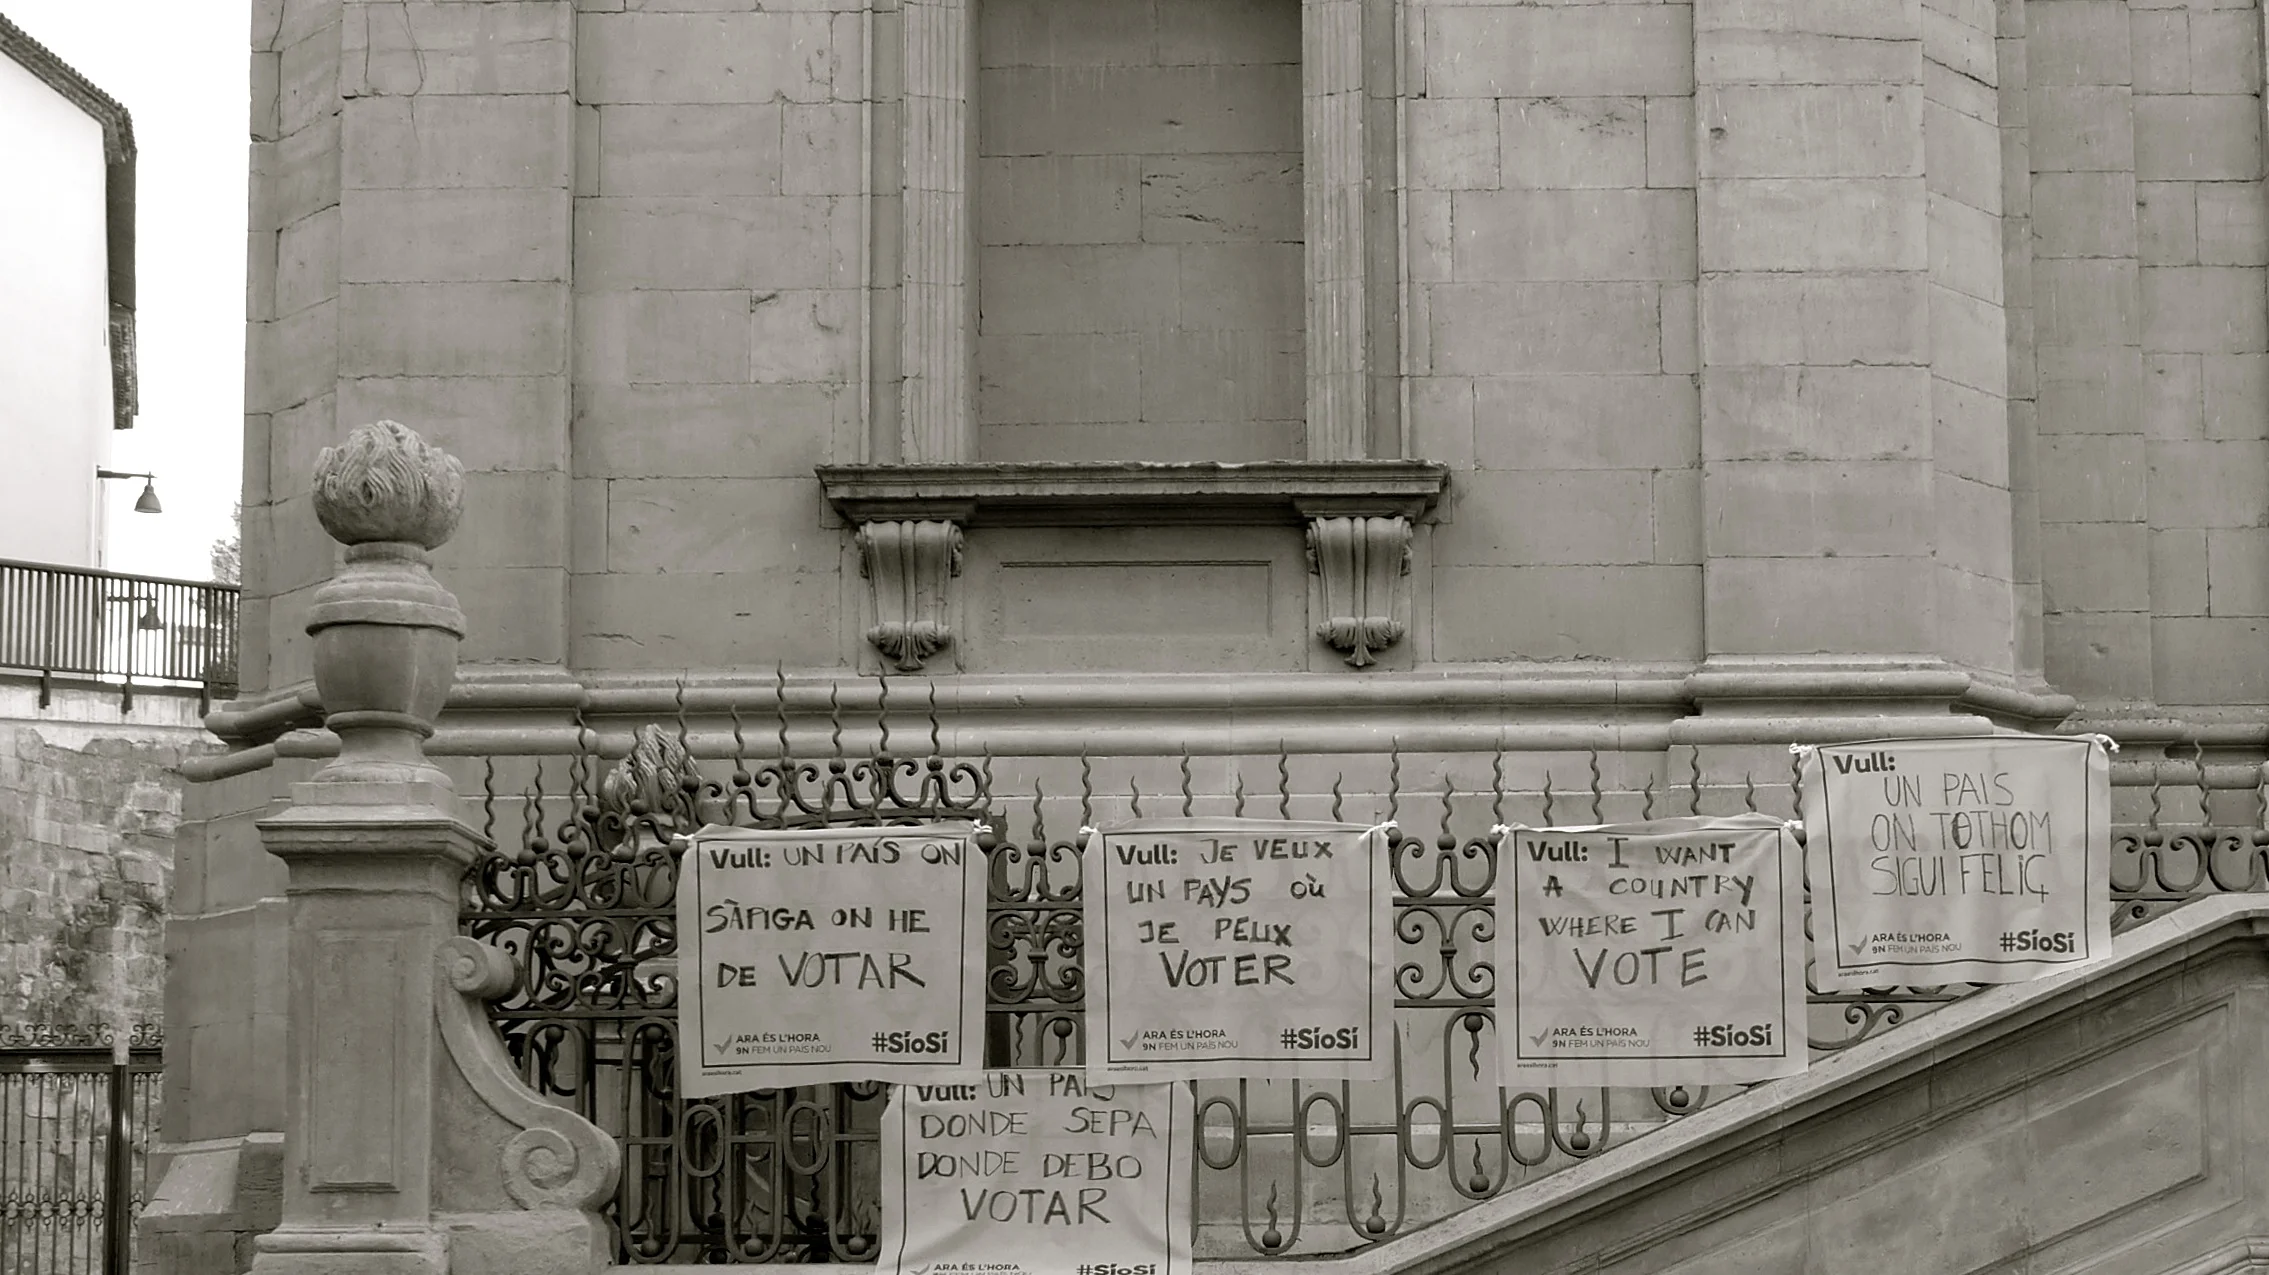 Vull: UN PAÍS ON
SÀPIGA ON HE
DE VOTAR
ARA ÉS L'HORA
9N FEM UN PAÍS NOU
#SíoSí
araeslhora.cat
Vull: JE VEUX
UN PAYS OÙ
JE PEUX
VOTER
ARA ÉS L'HORA
9N FEM UN PAÍS NOU
#SíoSí
araeslhora.cat
Vull: I WANT
A COUNTRY
WHERE I CAN
VOTE
ARA ÉS L'HORA
9N FEM UN PAÍS NOU
#SíoSí
araeslhora.cat
Vull:
UN PAIS
ON TOTHOM
SIGUI FELIÇ
ARA ÉS L'HORA
9N FEM UN PAÍS NOU
#SíoSí
araeslhora.cat
Vull: UN PAIS
DONDE SEPA
DONDE DEBO
VOTAR
ARA ÉS L'HORA
9N FEM UN PAÍS NOU
#SíoSí